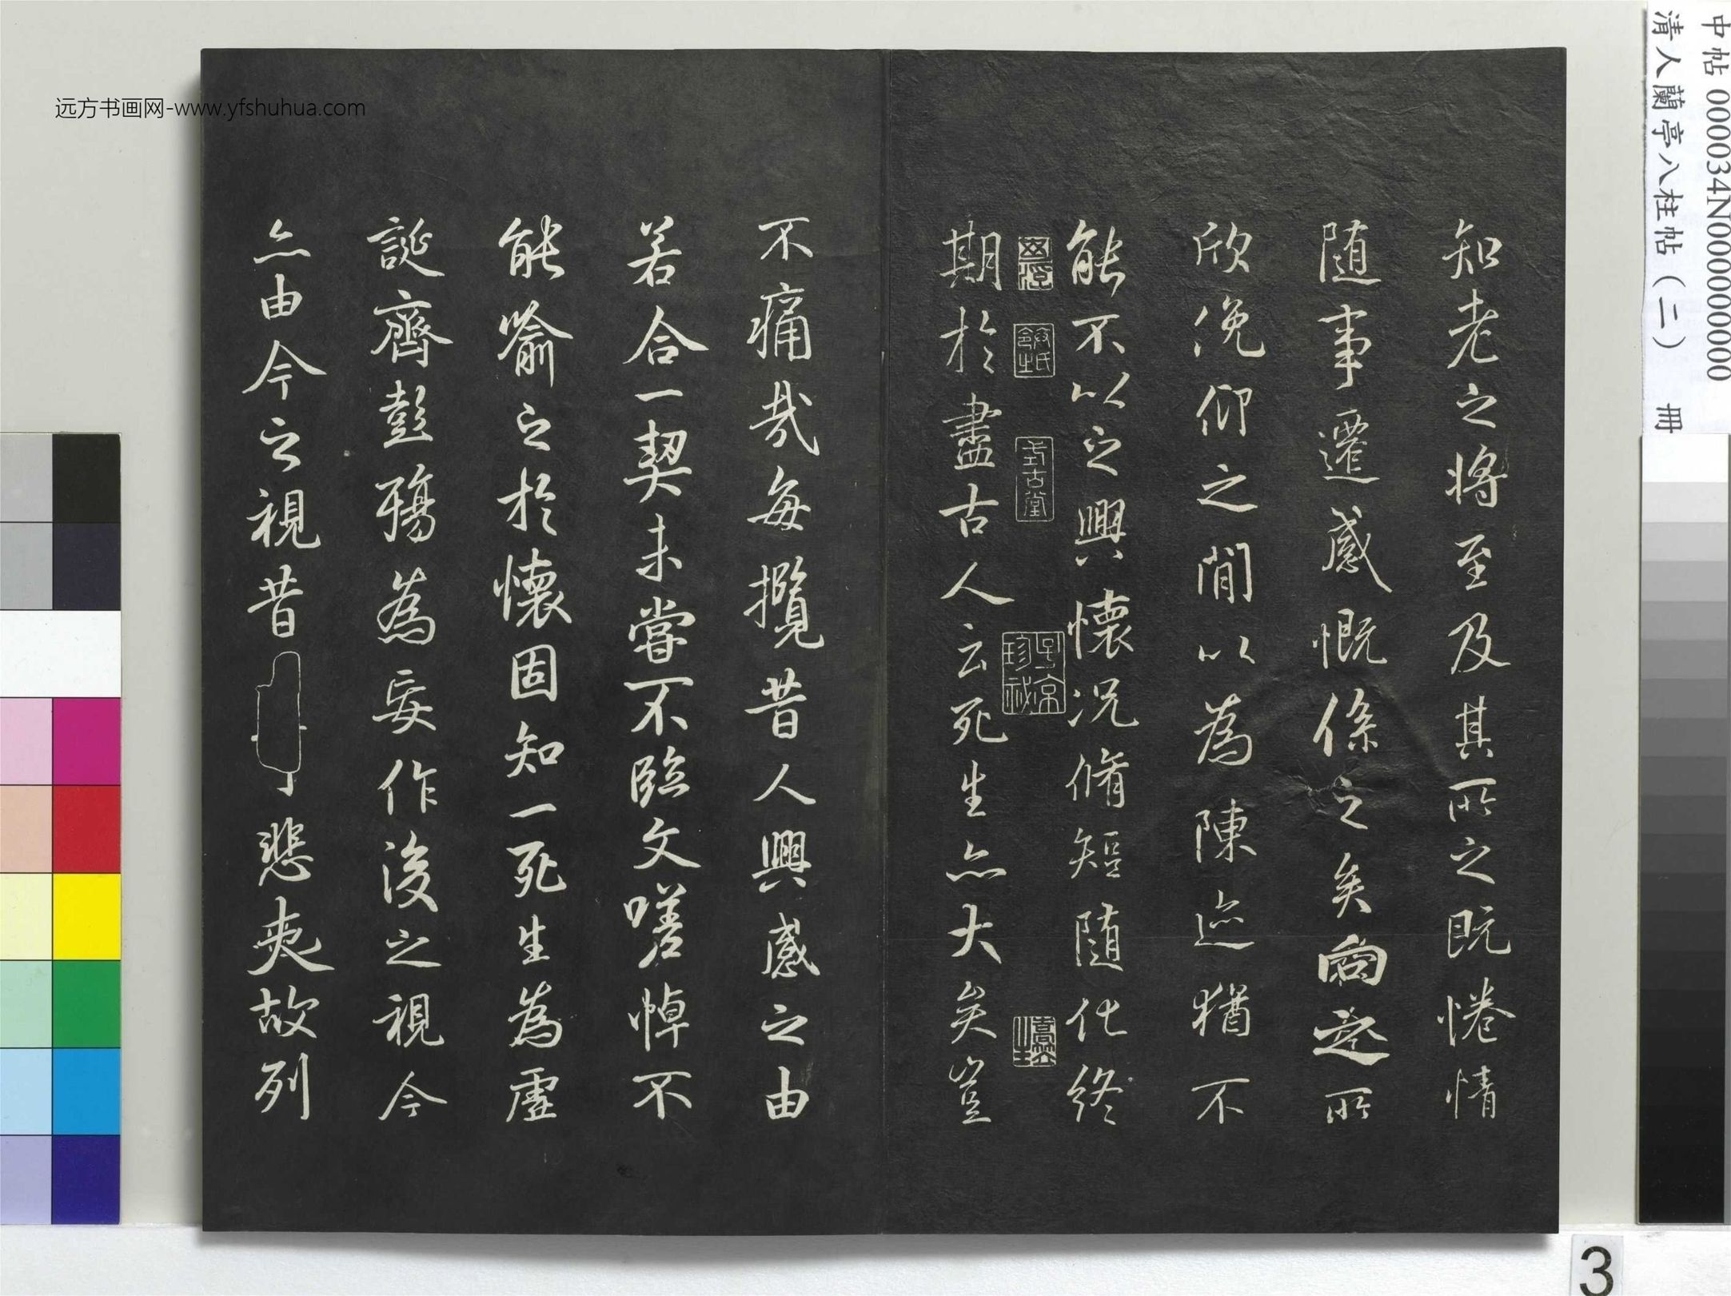 中帖 000034N000000000
清人蘭亭八柱帖（二） 冊
远方书画网-www.yfshuhua.com
知老之將至及其所之既惓情
随事遷感慨係之矣向之所
欣俛仰之閒以為陳迹猶不
能不以之興懷况脩短随化終
式古堂
子京珍秘
期於盡古人云死生亦大矣豈
不痛哉每攬昔人興感之由
若合一契未嘗不臨文嗟悼不
能喻之於懷固知一死生為虛
誕齊彭殤為妄作後之視今
亦由今之視昔悲夫故列
3